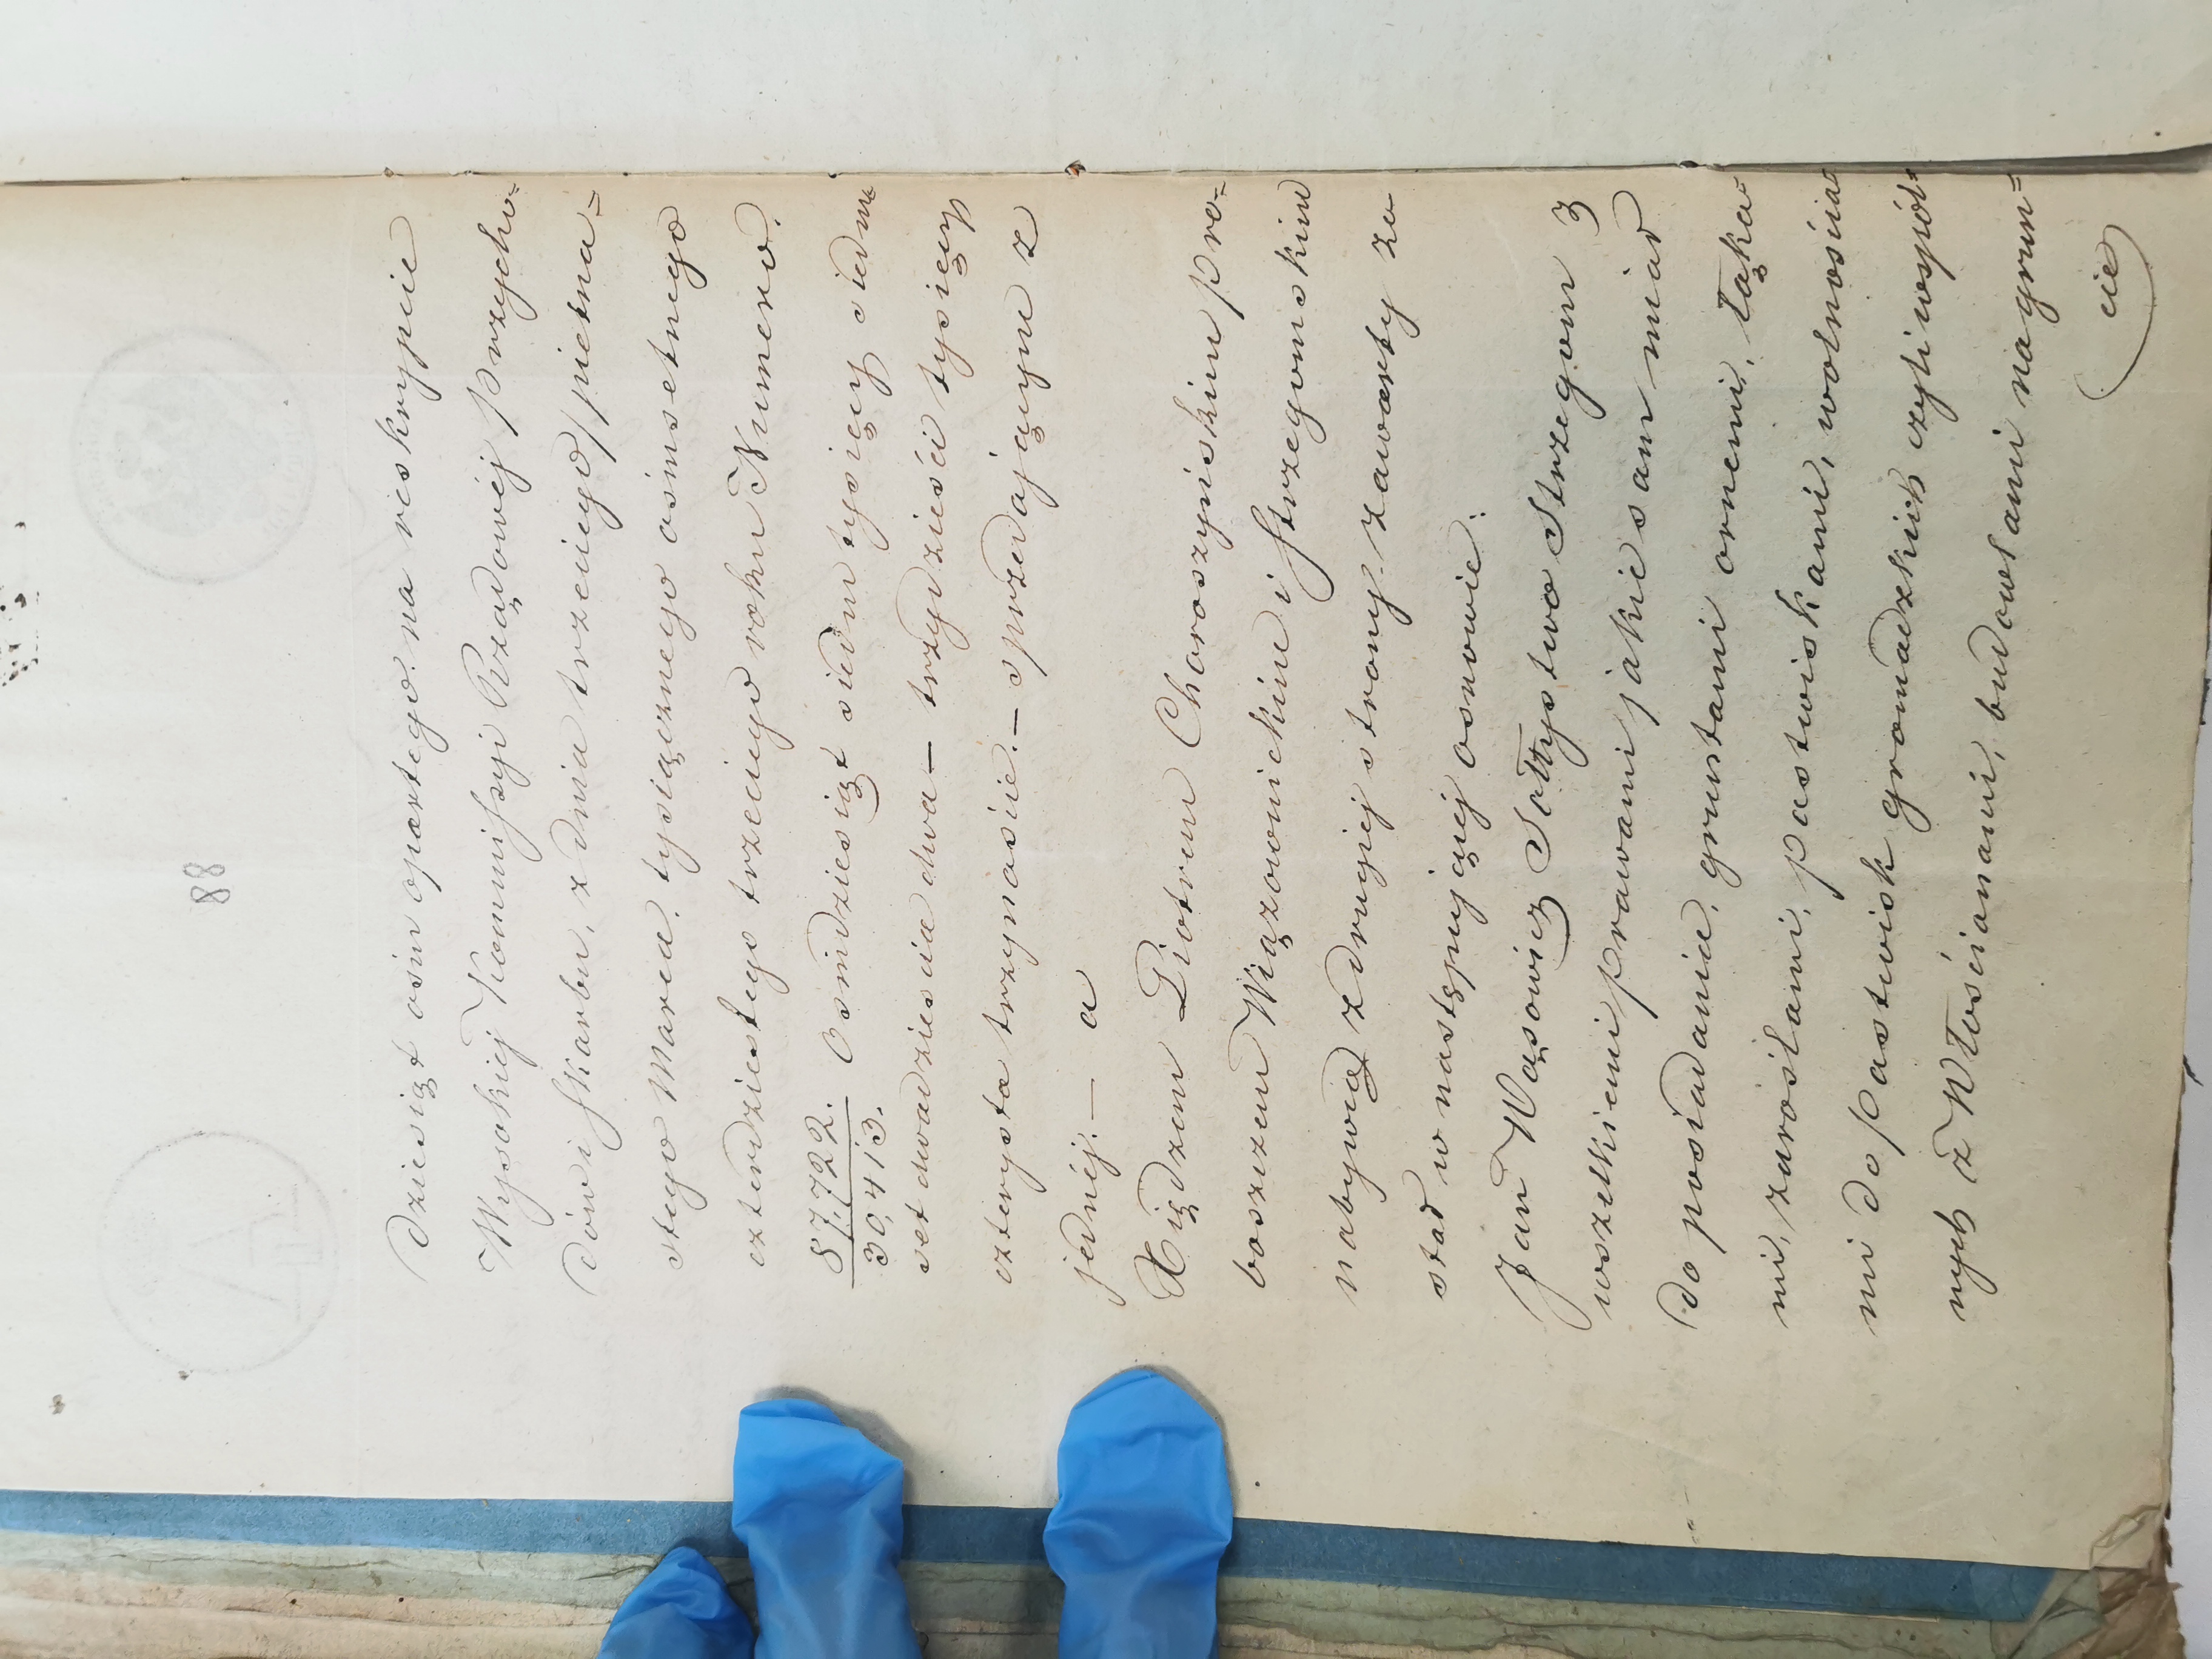 88
dziesiąt ośm opartego na reskrypcie
Wysokiej Kommissyi Rządowej Przycho=
dów i Skarbu, z dnia trzeciego/pietna=
stego Marca, tysiącznego ośmsetnego
czterdziestego trzeciego roku Numero.
87,722. Osmdziesiąt siedm tysięcy siedm
30,413.
set dwadzieścia dwa — trzydzieści tysięcy
czterysta trzynaście. — sprzedającym z
jednéj. — a
Xiędzem Piotrem Choroszyńskim Pro=
boszczem Wiązownickim i Strzegomskim
nabywcą z drugiej strony zawarty zo
stał w następującéj osnowie.
Jan Wąsowicz Sołtystwo Strzegom 3
wszelkiemi prawami jakie sam miał
do posiadania, gruntami ornemi, łąka=
mi, zaroślami, pastwiskami, wolnościa
mi do pastwisk gromadzkich czyli wspól=
nych z Włościanami, budowlami na grun=
cie